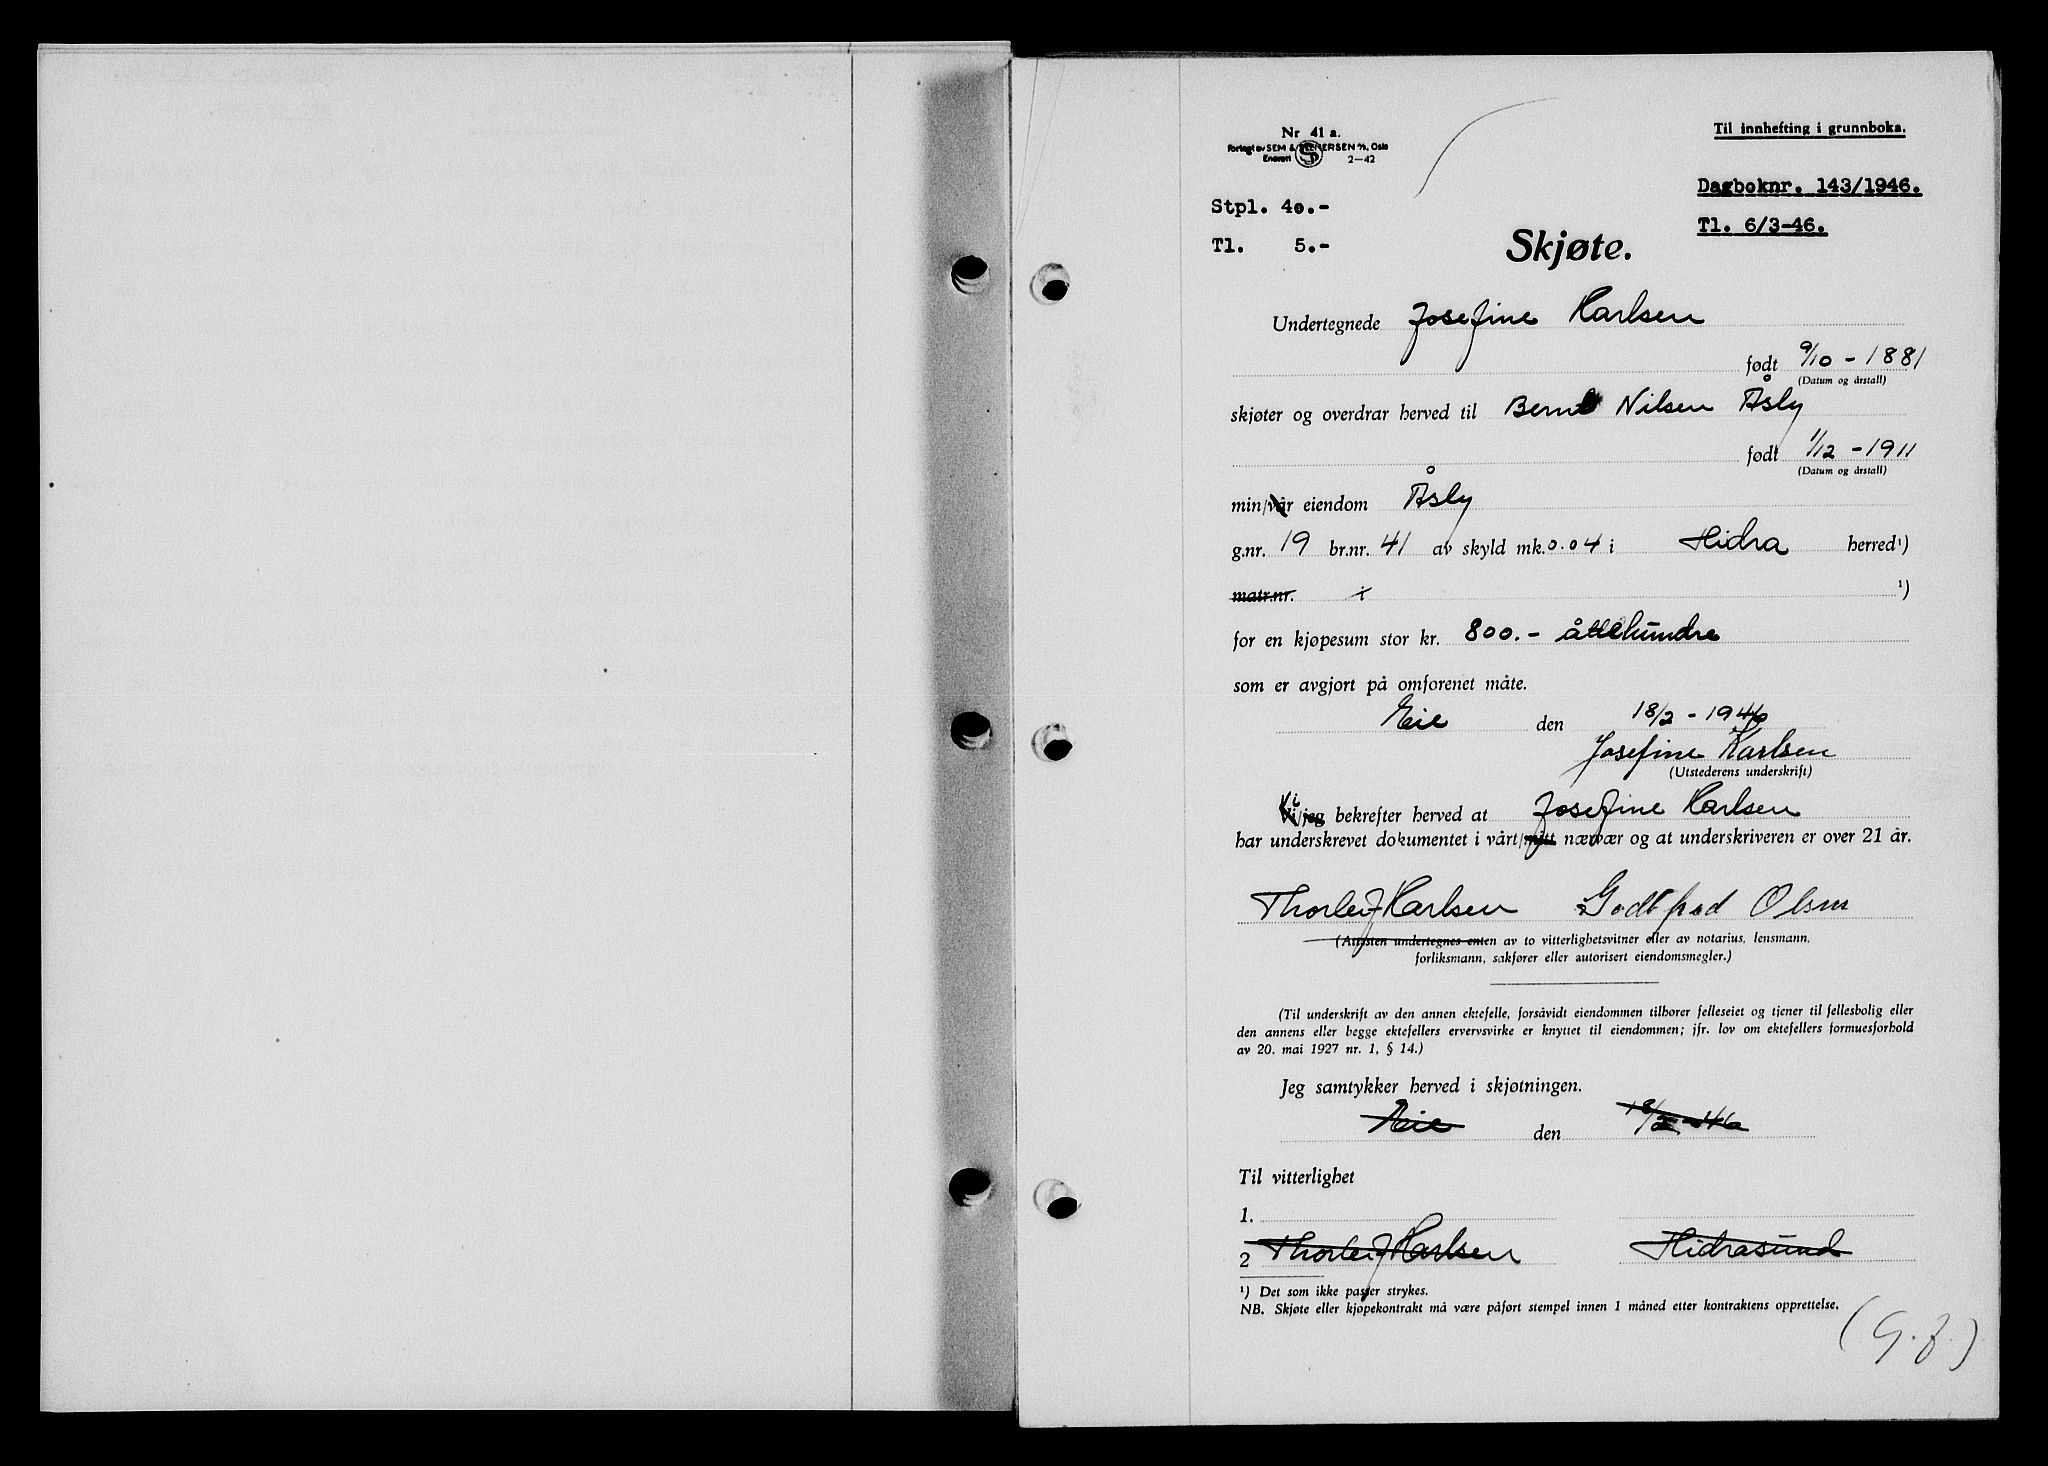 Nr 41 a.
Forlagt av SEM & STENERSEN A/S, Oslo
Enerett 2—42
Til innhefting i grunnboka.
Dagboknr. 143/1946.
Stpl. 40.-
Tl. 6/3-46.
Tl. 5.-
Skjøte.
Undertegnede Josefine Karlsen
født 9/10 - 1881
(Datum og årstall)
skjøter og overdrar herved til Bernt Nilsen Åsly
født 1/12 - 1911
(Datum og årstall)
min/vår eiendom Åsly
g.nr. 19 br.nr. 41 av skyld mk. 0.04 i Hidra herred¹)
matr.nr. i ¹)
for en kjøpesum stor kr. 800.- åttehundre
som er avgjort på omforenet måte.
Eie den 18/2 - 1946
Josefine Karlsen
(Utstederens underskrift)
Vi/jeg bekrefter herved at Josefine Karlsen
har underskrevet dokumentet i vårt/mitt nærvær og at underskriveren er over 21 år.
Thorleif Karlsen Godtfred Olsen
(Attesten undertegnes enten av to vitterlighetsvitner eller av notarius, lensmann,
forliksmann, sakfører eller autorisert eiendomsmegler.)
(Til underskrift av den annen ektefelle, forsåvidt eiendommen tilhører felleseiet og tjener til fellesbolig eller
den annens eller begge ektefellers ervervsvirke er knyttet til eiendommen; jfr. lov om ektefellers formuesforhold
av 20. mai 1927 nr. 1, § 14.)
Jeg samtykker herved i skjøtningen.
Eie den 18/2 - 46
Til vitterlighet
1.
2 Thorleif Karlsen Hidrasund
¹) Det som ikke passer strykes.
NB. Skjøte eller kjøpekontrakt må være påført stempel innen 1 måned etter kontraktens opprettelse.
(G.f.)